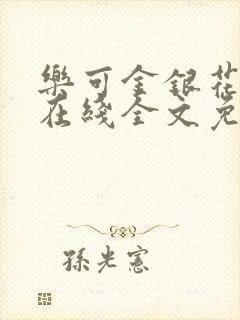 樂可金銀花
在綫全文免
孫光憲